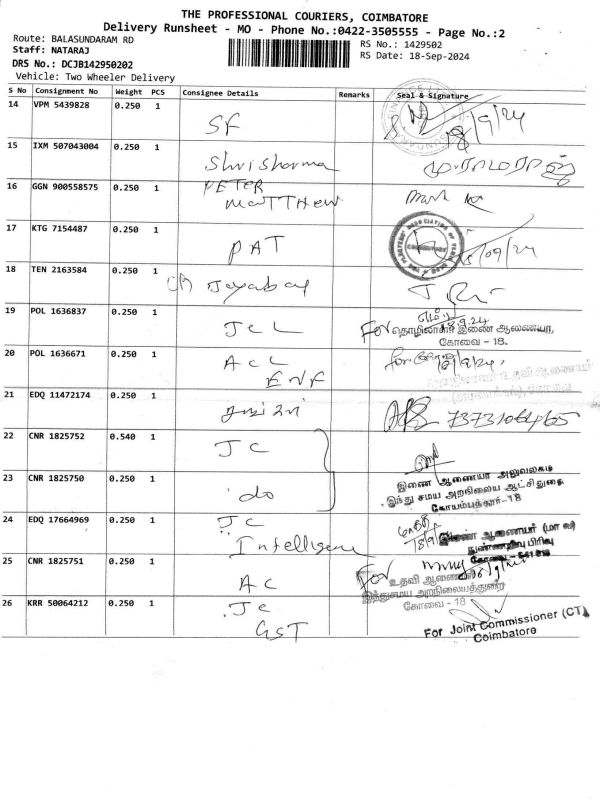 THE PROFESSIONAL COURIERS, COIMBATORE
Delivery Runsheet - MO - Phone No.:0422-3505555 - Page No.:2
Route: BALASUNDARAM RD
RS No.: 1429502
Staff: NATARAJ
RS Date: 18-Sep-2024
DRS No.: DCJB142950202
Vehicle: Two Wheeler Delivery
S No Consignment No Weight PCS Consignee Details Remarks Seal & Signature
14 VPM 5439828 0.250 1
SF 18/9/24
15 IXM 507043004 0.250 1
Shri Sharma
16 GGN 900558575 0.250 1 PETER
MATTHEW
17 KTG 7154487 0.250 1
PAT 18/09/24
18 TEN 2163584 0.250 1
19 POL 1636837 0.250 1
JCL For தொழிலாளர் இணை ஆணையர்,
18.9.24
கோவை - 18.
20 POL 1636671 0.250 1
ACL for 18/9/24
ENF
21 EDQ 11472174 0.250 1
22 CNR 1825752 0.540 1
JC
23 CNR 1825750 0.250 1
do
இணை ஆணையர் அலுவலகம்
இந்து சமய அறநிலைய ஆட்சி துறை
கோயம்புத்தூர்-18
24 EDQ 17664969 0.250 1 JC
Intelligence
இணை ஆணையர் (மா வ)
நுண்ணறிவு பிரிவு
25 CNR 1825751 0.250 1
AC For உதவி ஆணையர்
இந்துசமய அறநிலையத்துறை
கோவை - 18
26 KRR 50064212 0.250 1 JC
GST
For Joint Commissioner (CT)
Coimbatore